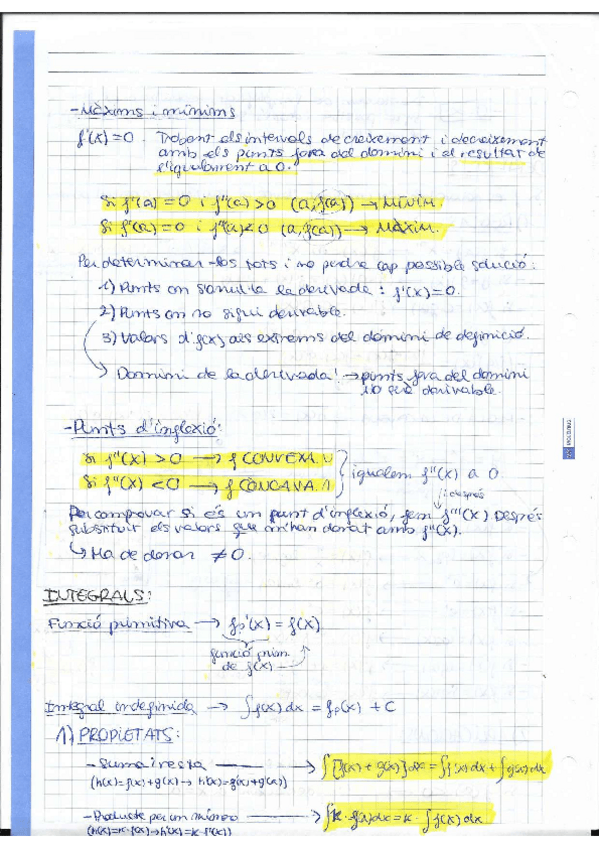 - Màxims i mínims
f'(x)=0. Trobant els intervals de creixement i decreixement
amb els punts fora del domini i el resultat de
l'igualament a 0.
Si f'(a)=0 i f''(a)>0 (a, f(a)) → MÍNIM.
Si f'(a)=0 i f''(a)<0 (a, f(a)) → MÀXIM.
Per determinar-los tots i no perdre cap possible solució:
1) Punts on s'anul·la la derivada: f'(x)=0.
2) Punts on no sigui derivable.
3) Valors d'f(x) als extrems del domini de definició.
↳ Domini de la derivada! → punts fora del domini
no serà derivable.
- Punts d'inflexió:
Si f''(x) > 0 → f CONVEXA. ∪
Si f''(x) < 0 → f CÒNCAVA. ∩
igualem f''(x) a 0.
després
Per comprovar si és un punt d'inflexió, fem f'''(x) Després
substituir els valors que m'han donat amb f''(x).
↳ Ha de donar ≠ 0.
INTEGRALS:
Funció primitiva → fp'(x) = f(x)
funció prim.
de f(x)
Integral indefinida → ∫f(x)dx = fp(x) + C
1) PROPIETATS:
- Suma i resta → ∫[f(x) + g(x)]dx = ∫f(x)dx + ∫g(x)dx
(h(x)=f(x)+g(x) → h'(x)=f'(x)+g'(x))
- Producte per un número → ∫k·f(x)dx = k·∫f(x)dx
(h(x)=k·f(x) → h'(x)=k·f'(x))